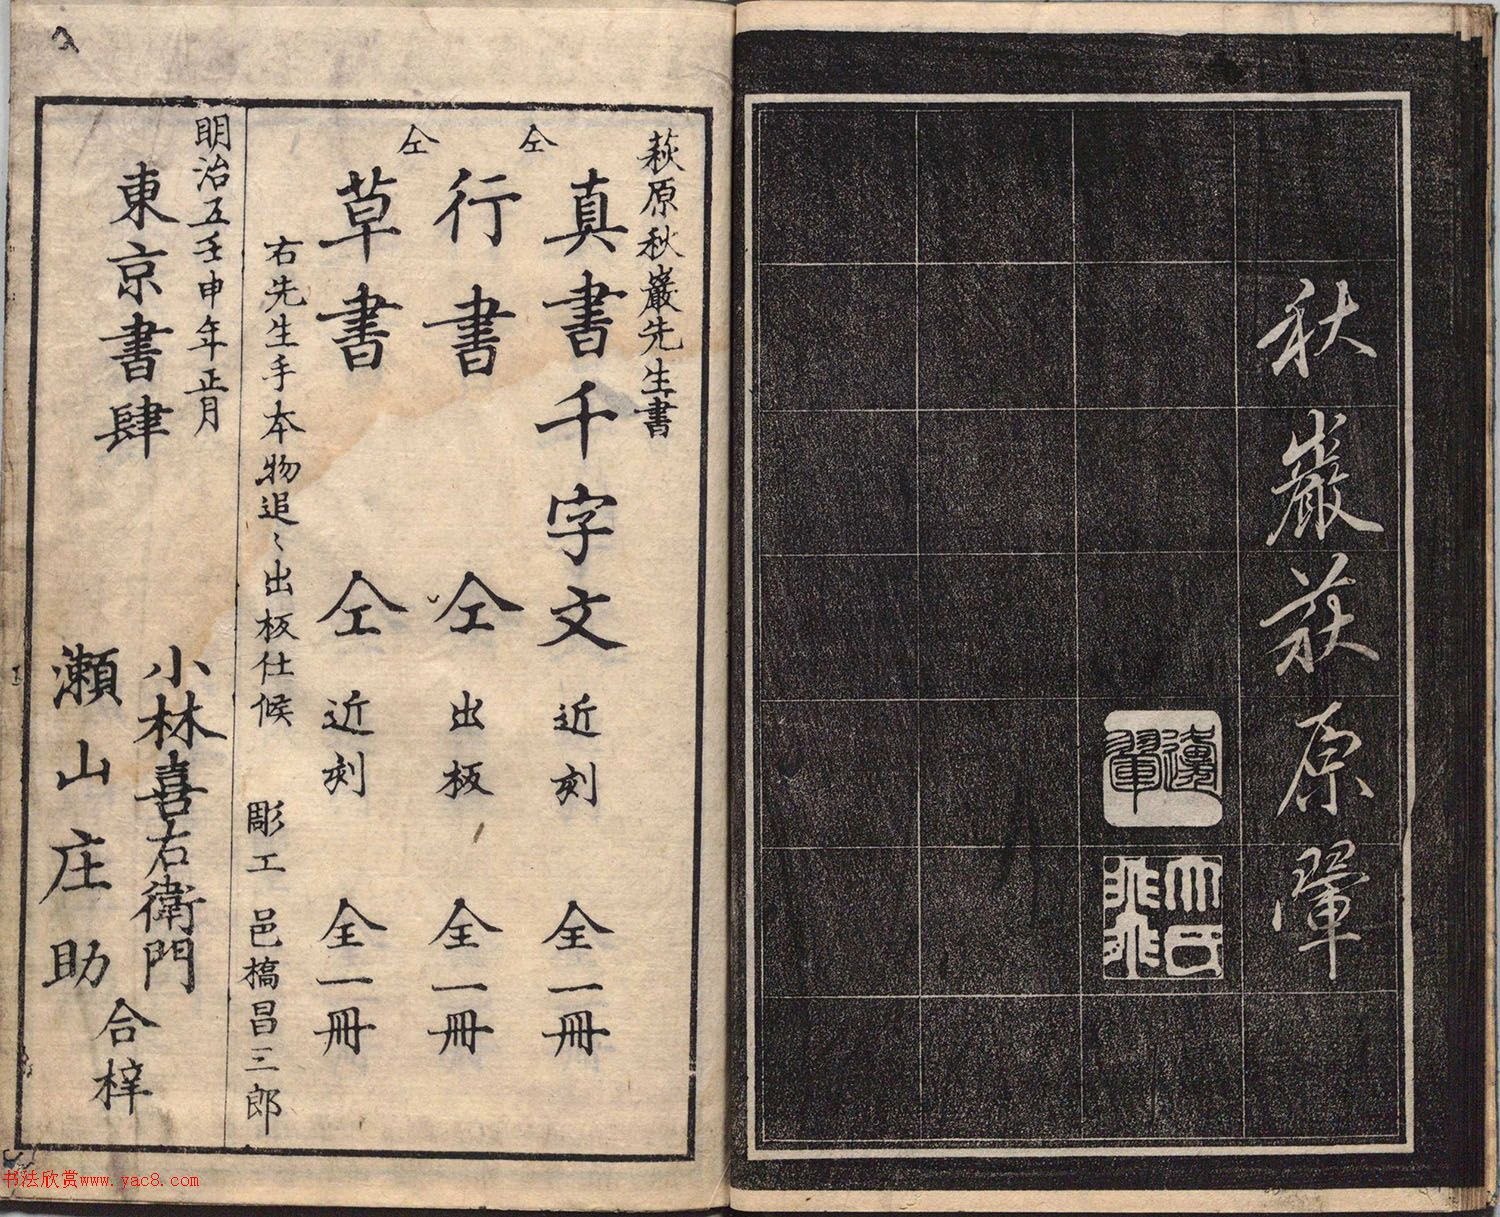 秋巖萩原翬
萩原秋巖先生書
真書千字文 近刻 全一冊
仝 行書 仝 出板 全一冊
仝 草書 仝 近刻 全一冊
右先生手本物追〻出板仕候 彫工 邑橋昌三郎
明治五壬申年正月
東京書肆
小林喜右衛門
瀬山庄助
合梓
书法欣赏www.yac8.com